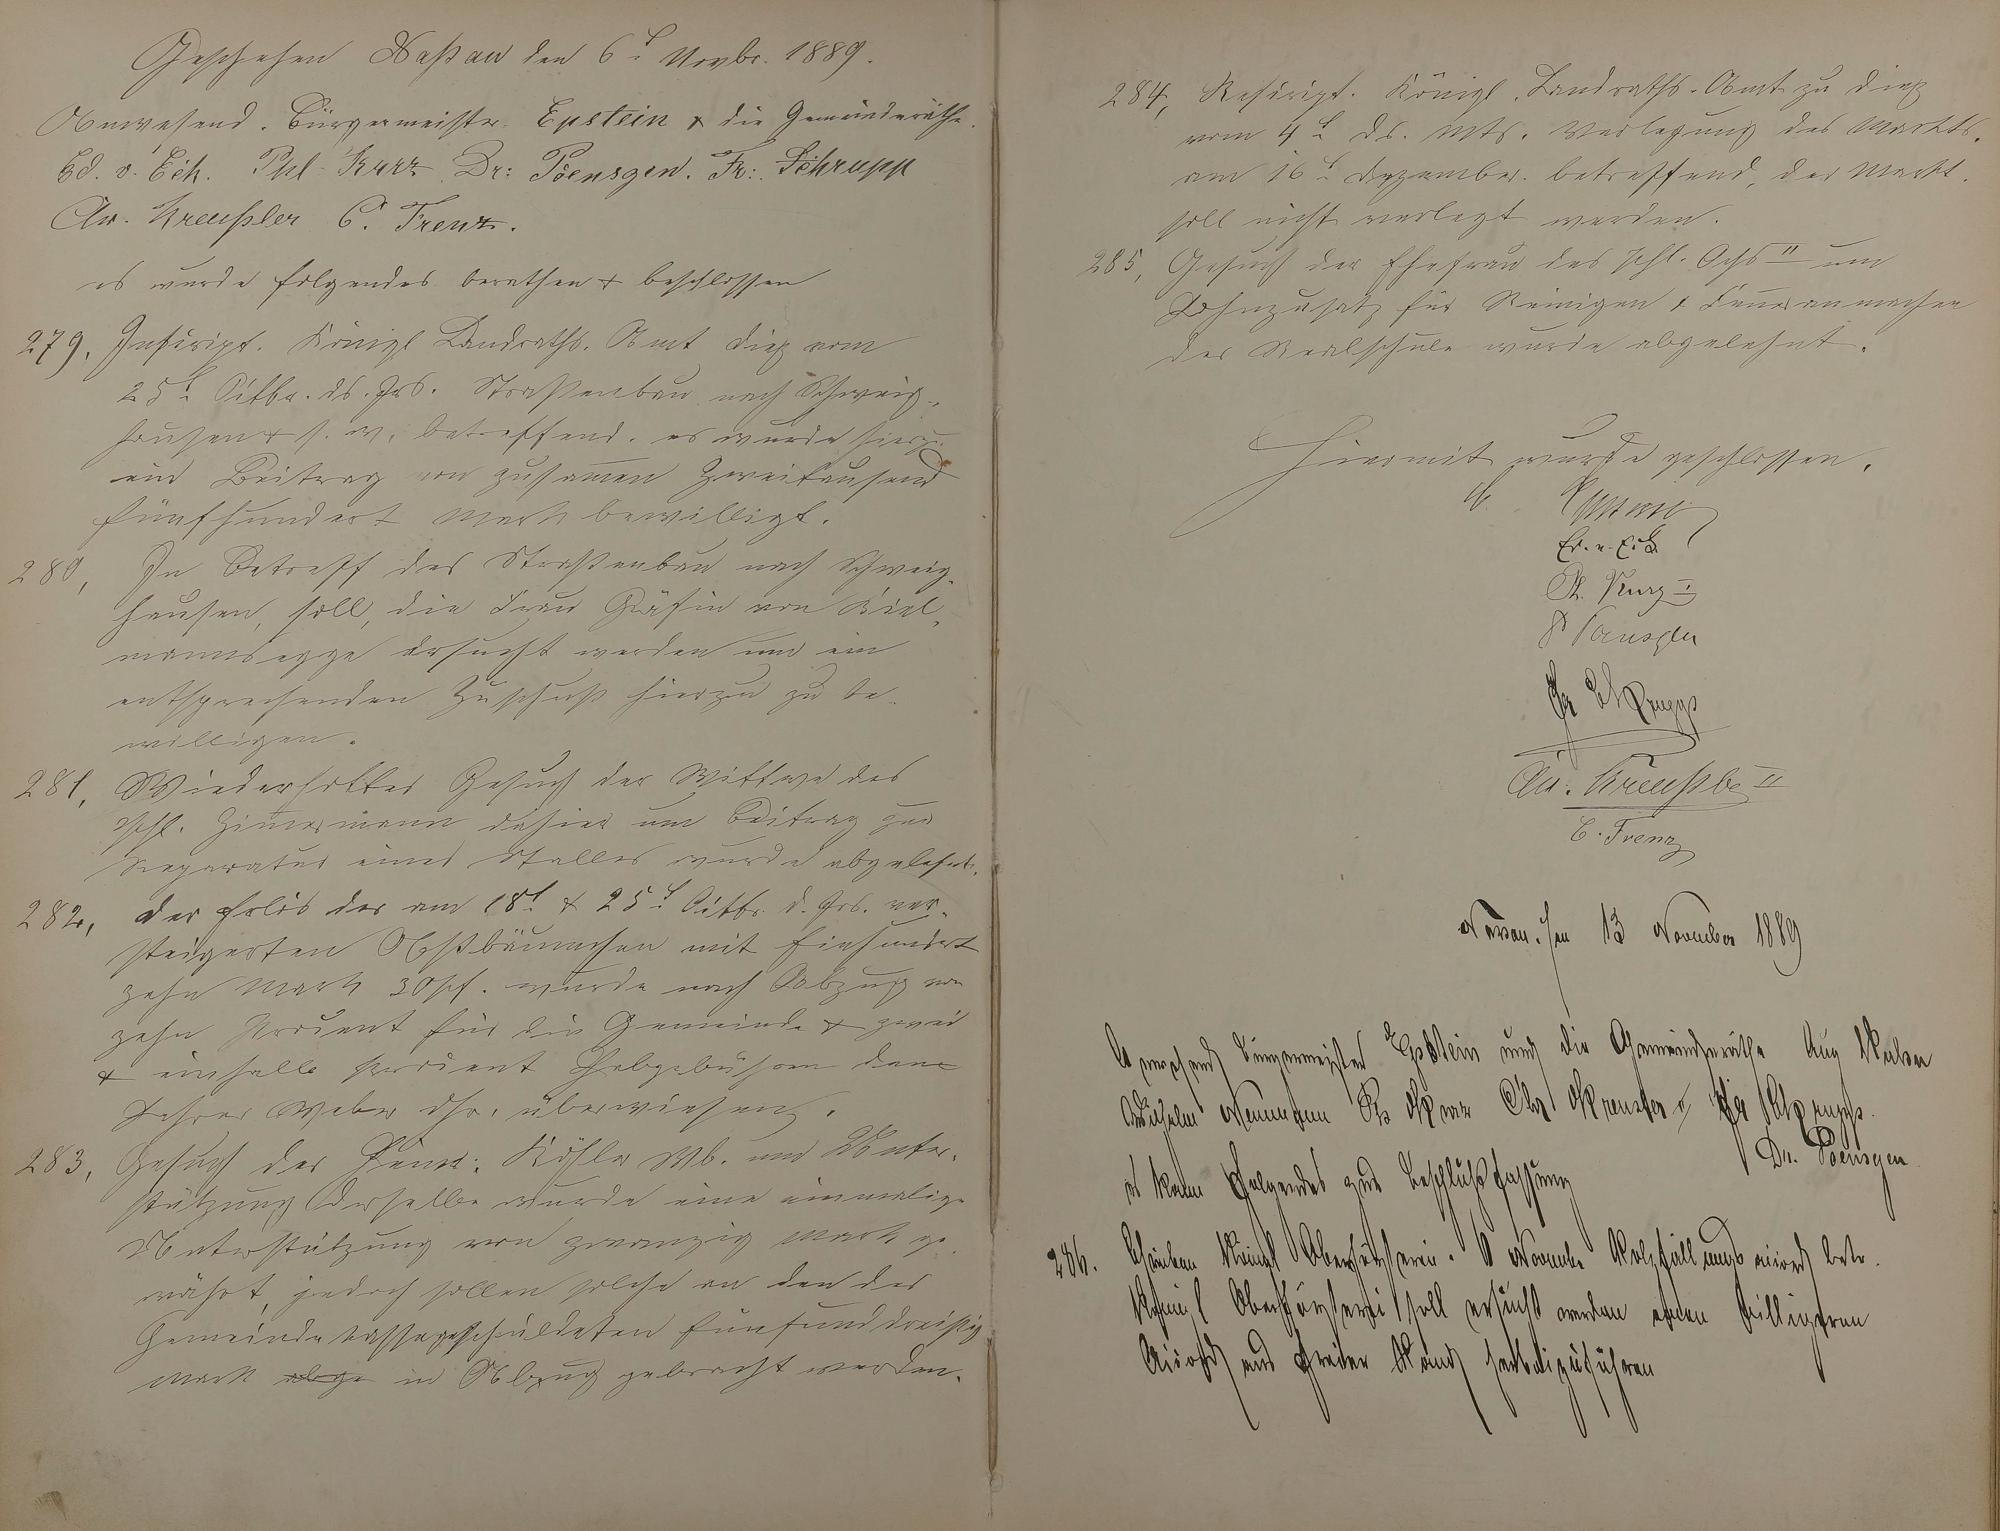 Geschehen Naßau den 6t Novbr. 1889.
Anwesend. Bürgermeister Epstein & die Gemeinderäthe.
Ed. v. Eck. Phl. Kurz Dr: Poensgen. Fr: Schrupp
Chr. Kreußler C. Frenz.
es wurde folgendes berathen & beschlossen
279, Rescript. Königl Landraths-Amt Diez vom
25t Octbr. ds. Jrs. Straßenbau nach Schweig-
hausen & s. w. betreffend. es wurde hierzu
ein Beitrag von zusam̅en Zweitausend
fünfhundert Mark bewilligt.
280, In Betreff des Straßenbau nach Schweig-
hausen, soll, die Frau Gräfin von Kiel-
mannsegge ersucht werden um ein
entsprechenden Zuschuß hierzu zu be-
willigen.
281, Wiederholtes Gesuch der Wittwe des
Phl. Zim̅ermann dahier um Beitrag zur
Reparatur eines Stalles wurde abgelehnt.
282, Der Erlös der am 18t & 25t Octbr. d. Jrs. ver-
steigerten Obstbäumchen mit Einhundert
zehn Mark 30 Pf. wurde nach Abzug von
zehn Procent für die Gemeinde & zwei
& einhalb Procent Hebgebühren dem
Lehrer Weber dhr. überwiesen.
283, Gesuch der Heinr. Köhler Wb. um Unter-
stützung derselbe wurde eine einmalige
Unterstützung von zwanzig Mark ge-
währt, jedoch sollen solche an den der
Gemeindekasse geschuldeten fünfunddreißig
Mark abge in Abzug gebracht werden.
284, Rescript. Königl. Landraths-Amt zu Diez
vom 4t ds. Mts. Verlegung des Markts
am 16t Dezember betreffend, der Markt
soll nicht verlegt werden.
285, Gesuch der Ehefrau des Phl. Ochs II um
Lohnzusatz für Reinigen & Feueranmachen
der Realschule wurde abgelehnt.
Hiermit wurde geschlossen.
Epstein
Ed. v. Eck
Ph. Kurz I
Dr Poensgen
Fr Schrupp
Chr. Kreußler II
C. Frenz
Nassau, den 13 November 1889
Anwesend Bürgermeister Epstein und die Gemeinderäthe Aug
Wilhelm Ph Kurz Chr Kreusler Fr Schrupp.
Dr. Poensgen
es kam folgendes zur Beschlußfassung
286. Schreiben Königl Oberförsterei. November Holzfällungs accord betr.
Königl Oberförsterei soll ersucht werden einen billigeren
Accord aus freier Hand herbeizuführen